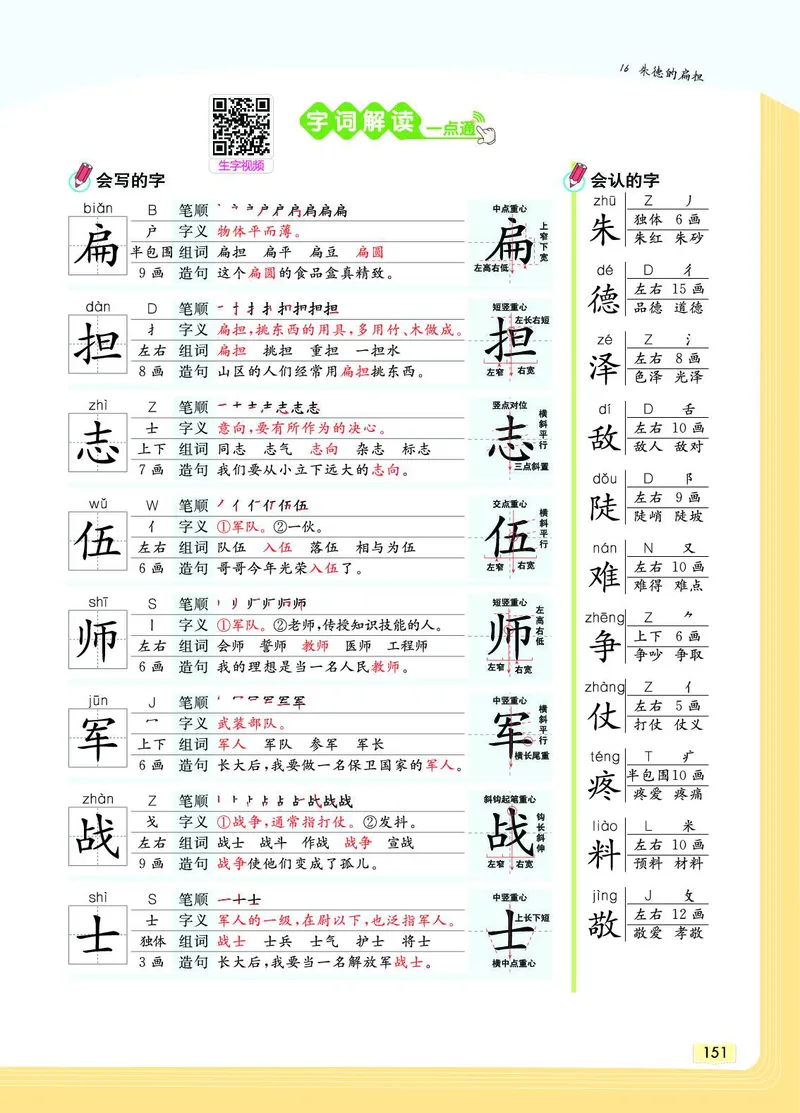 16 朱德的扁担
字词解读 一点通
生字视频
会写的字
biǎn B 笔顺
扁 户 字义 物体平而薄。
半包围 组词 扁担 扁平 扁豆 扁圆
9画 造句 这个扁圆的食品盒真精致。
中点重心
上窄下宽
左高右低
dàn D 笔顺
担 扌 字义 扁担,挑东西的用具,多用竹、木做成。
左右 组词 扁担 挑担 重担 一担水
8画 造句 山区的人们经常用扁担挑东西。
短竖重心
左长右短
左窄 右宽
zhì Z 笔顺
志 士 字义 意向,要有所作为的决心。
上下 组词 同志 志气 志向 杂志 标志
7画 造句 我们要从小立下远大的志向。
竖点对位
横斜平行
三点斜置
wǔ W 笔顺
伍 亻 字义 ①军队。②一伙。
左右 组词 队伍 入伍 落伍 相与为伍
6画 造句 哥哥今年光荣入伍了。
交点重心
横斜平行
左窄 右宽
shī S 笔顺
师 丨 字义 ①军队。②老师,传授知识技能的人。
左右 组词 会师 誓师 教师 医师 工程师
6画 造句 我的理想是当一名人民教师。
短竖重心
左高右低
左窄 右宽
jūn J 笔顺
军 冖 字义 武装部队。
上下 组词 军人 军队 参军 军长
6画 造句 长大后,我要做一名保卫国家的军人。
中竖重心
横斜平行
横长尾重
zhàn Z 笔顺
战 戈 字义 ①战争,通常指打仗。②发抖。
左右 组词 战士 战斗 作战 战争 宣战
9画 造句 战争使他们变成了孤儿。
斜钩起笔重心
钩长斜伸
左窄 右宽
shì S 笔顺
士 士 字义 军人的一级,在尉以下,也泛指军人。
独体 组词 战士 士兵 士气 护士 将士
3画 造句 长大后,我要当一名解放军战士。
中竖重心
上长下短
横中点重心
会认的字
zhū Z 丿
朱 独体 6画
朱红 朱砂
dé D 彳
德 左右 15画
品德 道德
zé Z 氵
泽 左右 8画
色泽 光泽
dí D 舌
敌 左右 10画
敌人 敌对
dǒu D 阝
陡 左右 9画
陡峭 陡坡
nán N 又
难 左右 10画
难得 难点
zhēng Z ⺈
争 上下 6画
争吵 争取
zhàng Z 亻
仗 左右 5画
打仗 仗义
téng T 疒
疼 半包围 10画
疼爱 疼痛
liào L 米
料 左右 10画
预料 材料
jìng J 攵
敬 左右 12画
敬爱 孝敬
151